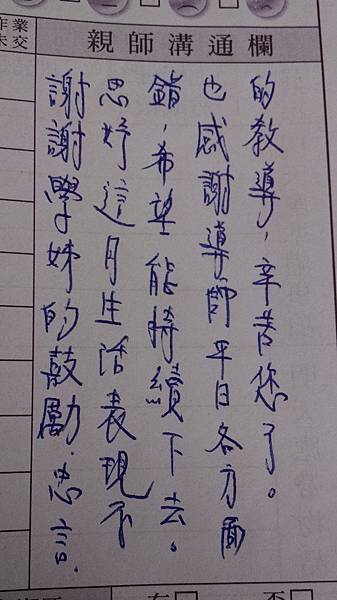 作業
未交
親師溝通欄
謝謝學姊的鼓勵.忠言.
思妤這月生活表現不
錯,希望能持續下去。
也感謝導師平日各方面
的教導,辛苦您了。